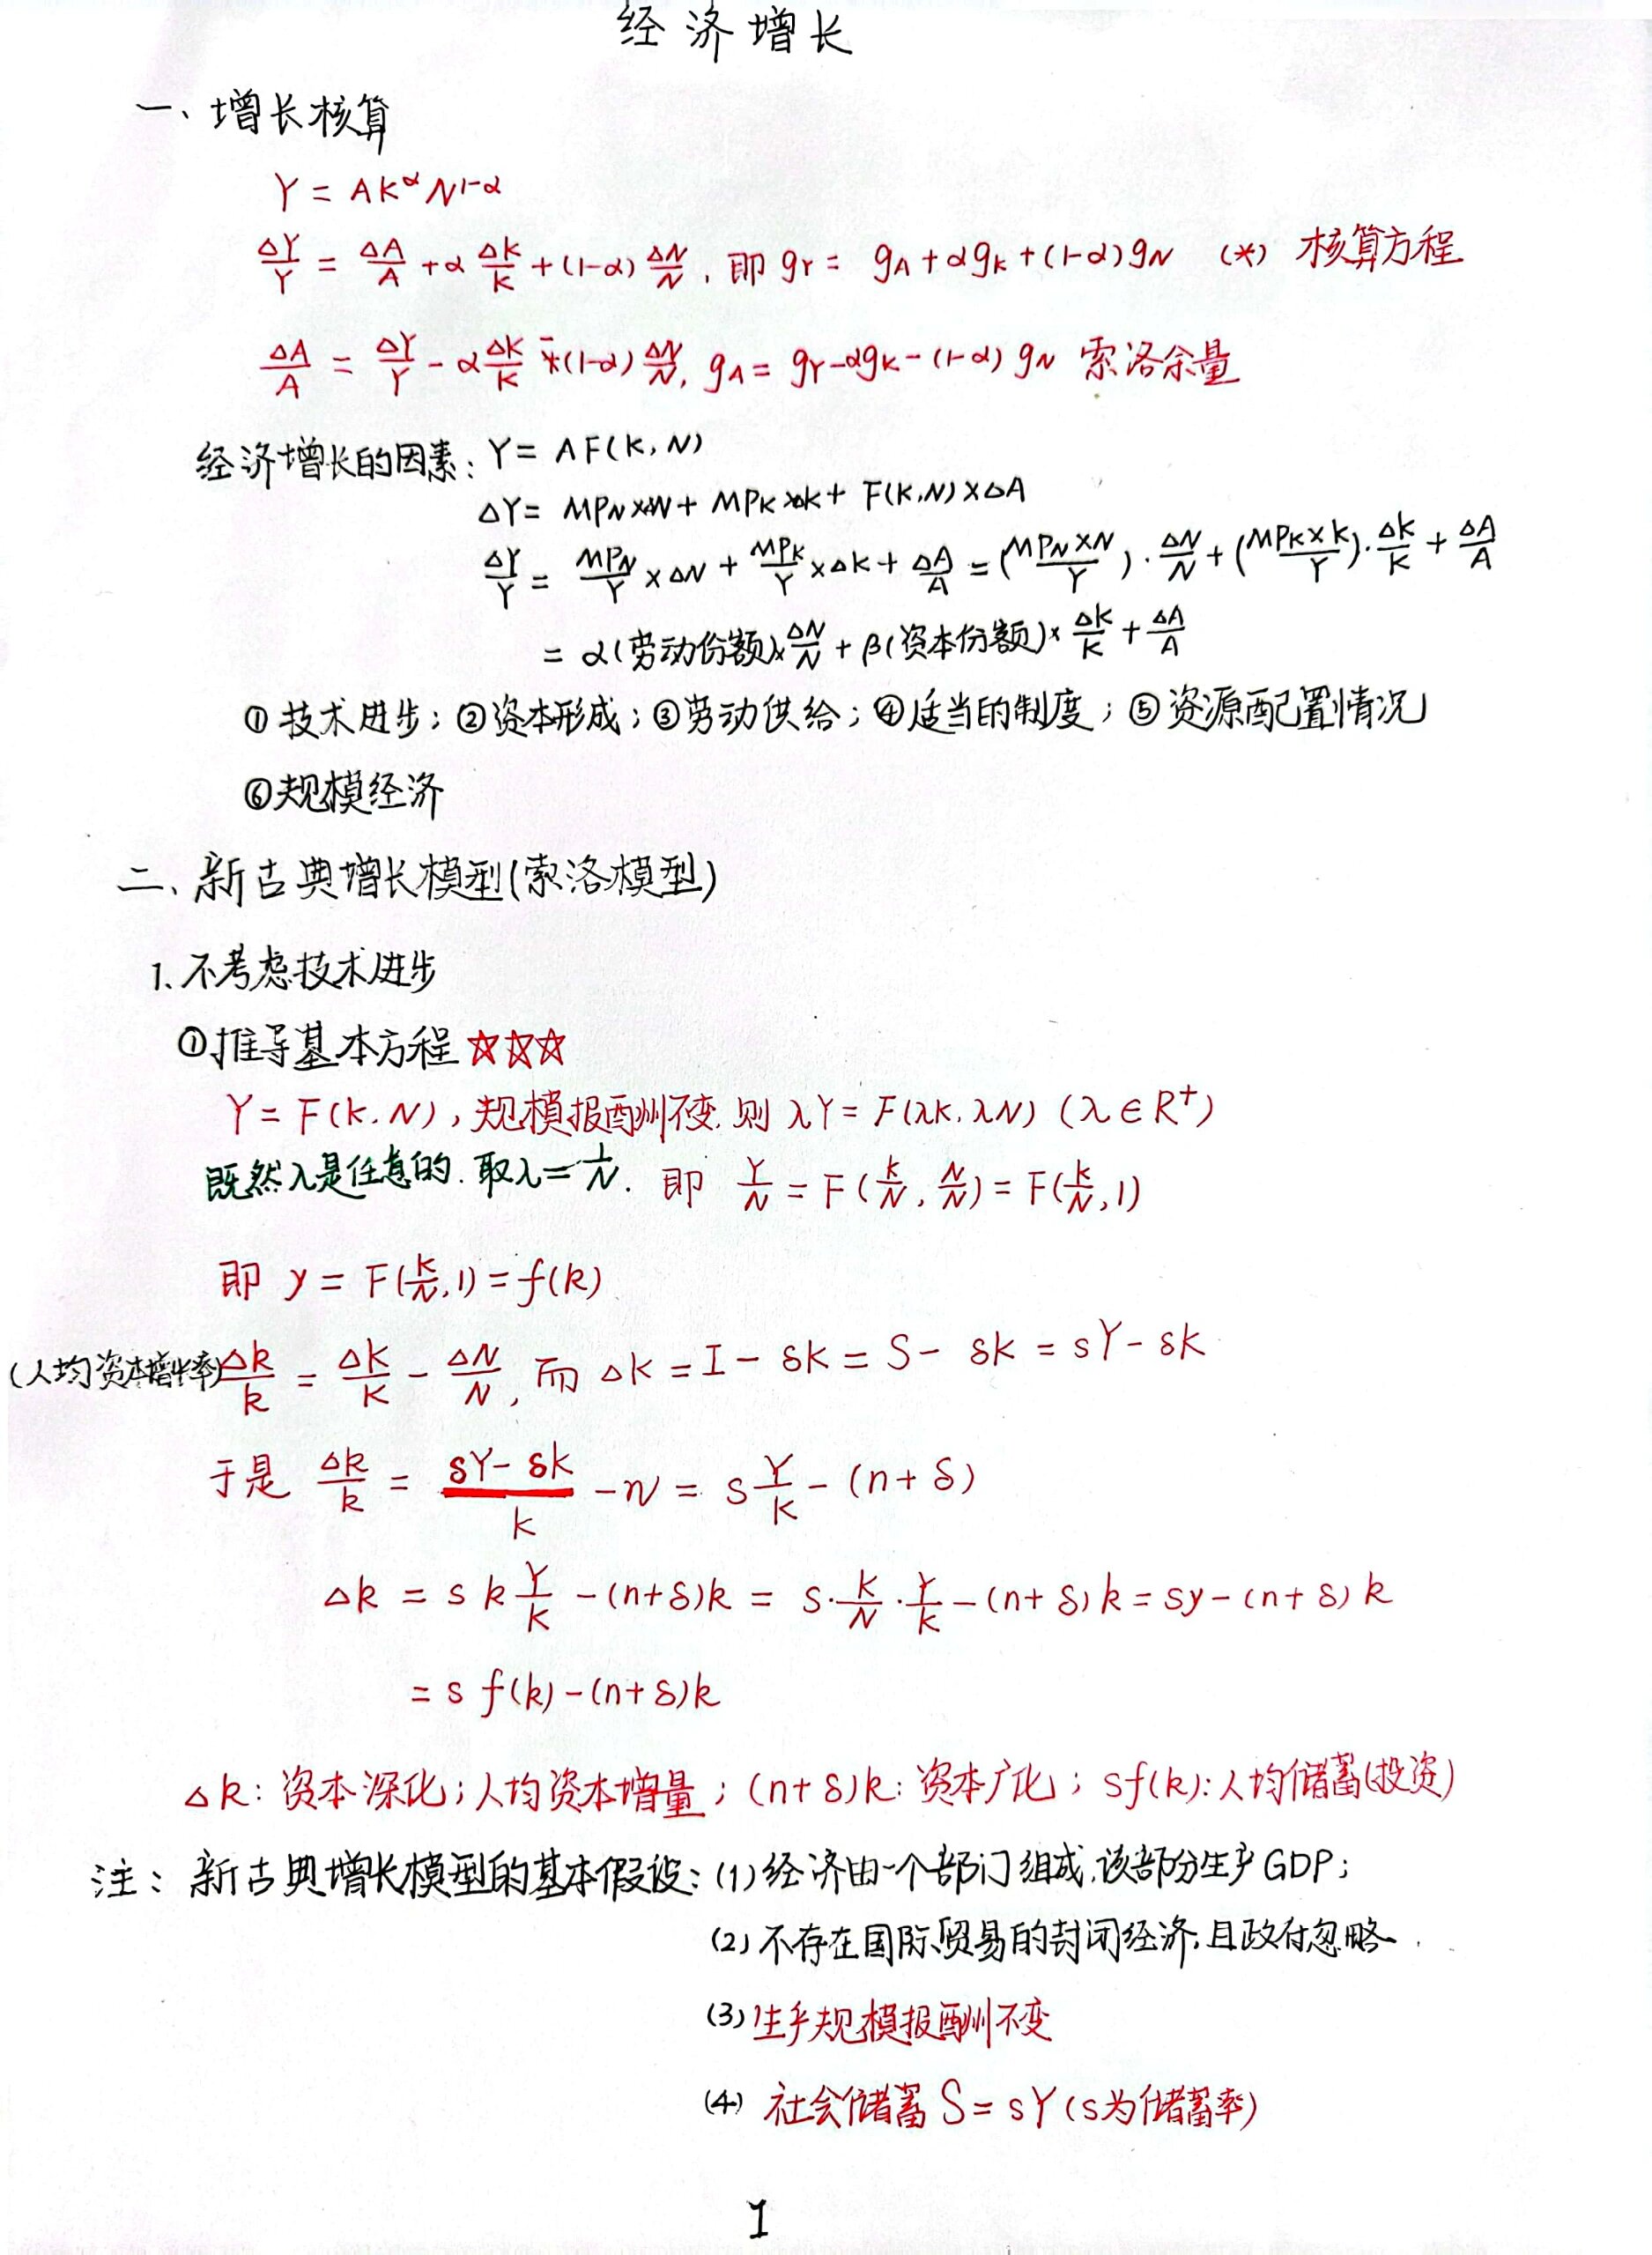 经济增长
一、增长核算
Y = AK^α N^1-α
ΔY/Y = ΔA/A + α ΔK/K + (1-α) ΔN/N, 即 gY = gA + αgK + (1-α)gN (*) 核算方程
ΔA/A = ΔY/Y - α ΔK/K - (1-α) ΔN/N, gA = gY - αgK - (1-α) gN 索洛余量
经济增长的因素: Y = AF(K, N)
ΔY = MPN×ΔN + MPK×ΔK + F(K,N)×ΔA
ΔY/Y = MPN/Y × ΔN + MPK/Y × ΔK + ΔA/A = (MPN×N/Y)·ΔN/N + (MPK×K/Y)·ΔK/K + ΔA/A
= α(劳动份额)×ΔN/N + β(资本份额)×ΔK/K + ΔA/A
①技术进步; ②资本形成; ③劳动供给; ④适当的制度; ⑤资源配置情况
⑥规模经济
二、新古典增长模型(索洛模型)
1、不考虑技术进步
①推导基本方程☆☆☆
Y = F(K, N), 规模报酬不变, 则 λY = F(λK, λN) (λ∈R⁺)
既然λ是任意的. 取λ=1/N. 即 Y/N = F(K/N, N/N) = F(K/N, 1)
即 y = F(K/N, 1) = f(k)
(人均资本增长率) Δk/k = ΔK/K - ΔN/N, 而 ΔK = I - δK = S - δK = sY - δK
于是 Δk/k = (sY - δK)/K - n = s Y/K - (n+δ)
Δk = s k Y/K - (n+δ)k = s·K/N·Y/K - (n+δ)k = sy - (n+δ)k
= s f(k) - (n+δ)k
Δk: 资本深化; 人均资本增量; (n+δ)k: 资本广化; sf(k): 人均储蓄(投资)
注: 新古典增长模型的基本假设: (1) 经济由一个部门组成, 该部分生产GDP;
(2) 不存在国际贸易的封闭经济, 且政府忽略.
(3) 生产规模报酬不变
(4) 社会储蓄 S = sY (s为储蓄率)
1